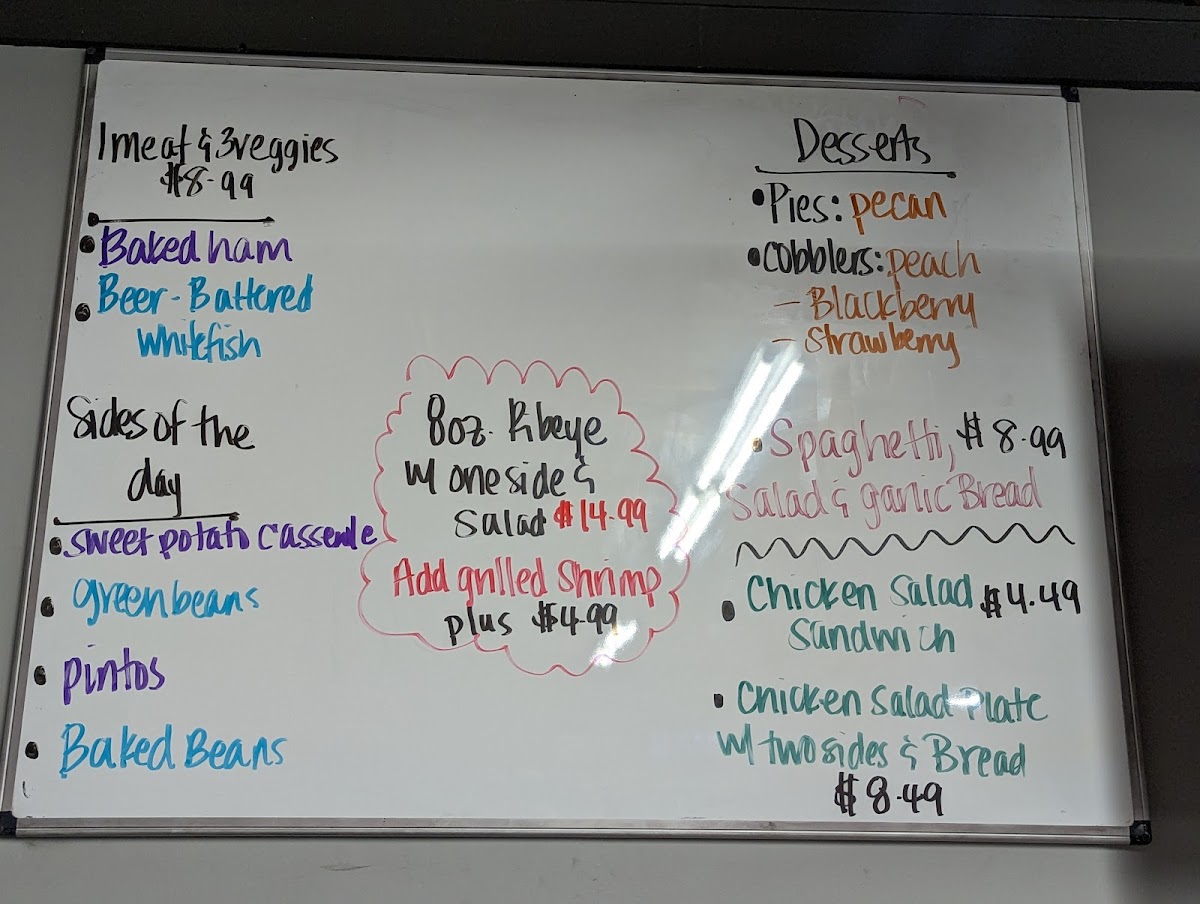 1 meat & 3 veggies
$8.99
Baked ham
Beer-Battered
Whitefish
Sides of the
day
sweet potato Casserole
green beans
pintos
Baked Beans
8oz. Ribeye
w/ one side &
Salad $14.99
Add grilled Shrimp
plus $4.99
Desserts
Pies: pecan
Cobblers: peach
- Blackberry
- Strawberry
Spaghetti, $8.99
Salad & garlic Bread
Chicken Salad $4.49
Sandwich
Chicken Salad Plate
w/ two sides & Bread
$8.49